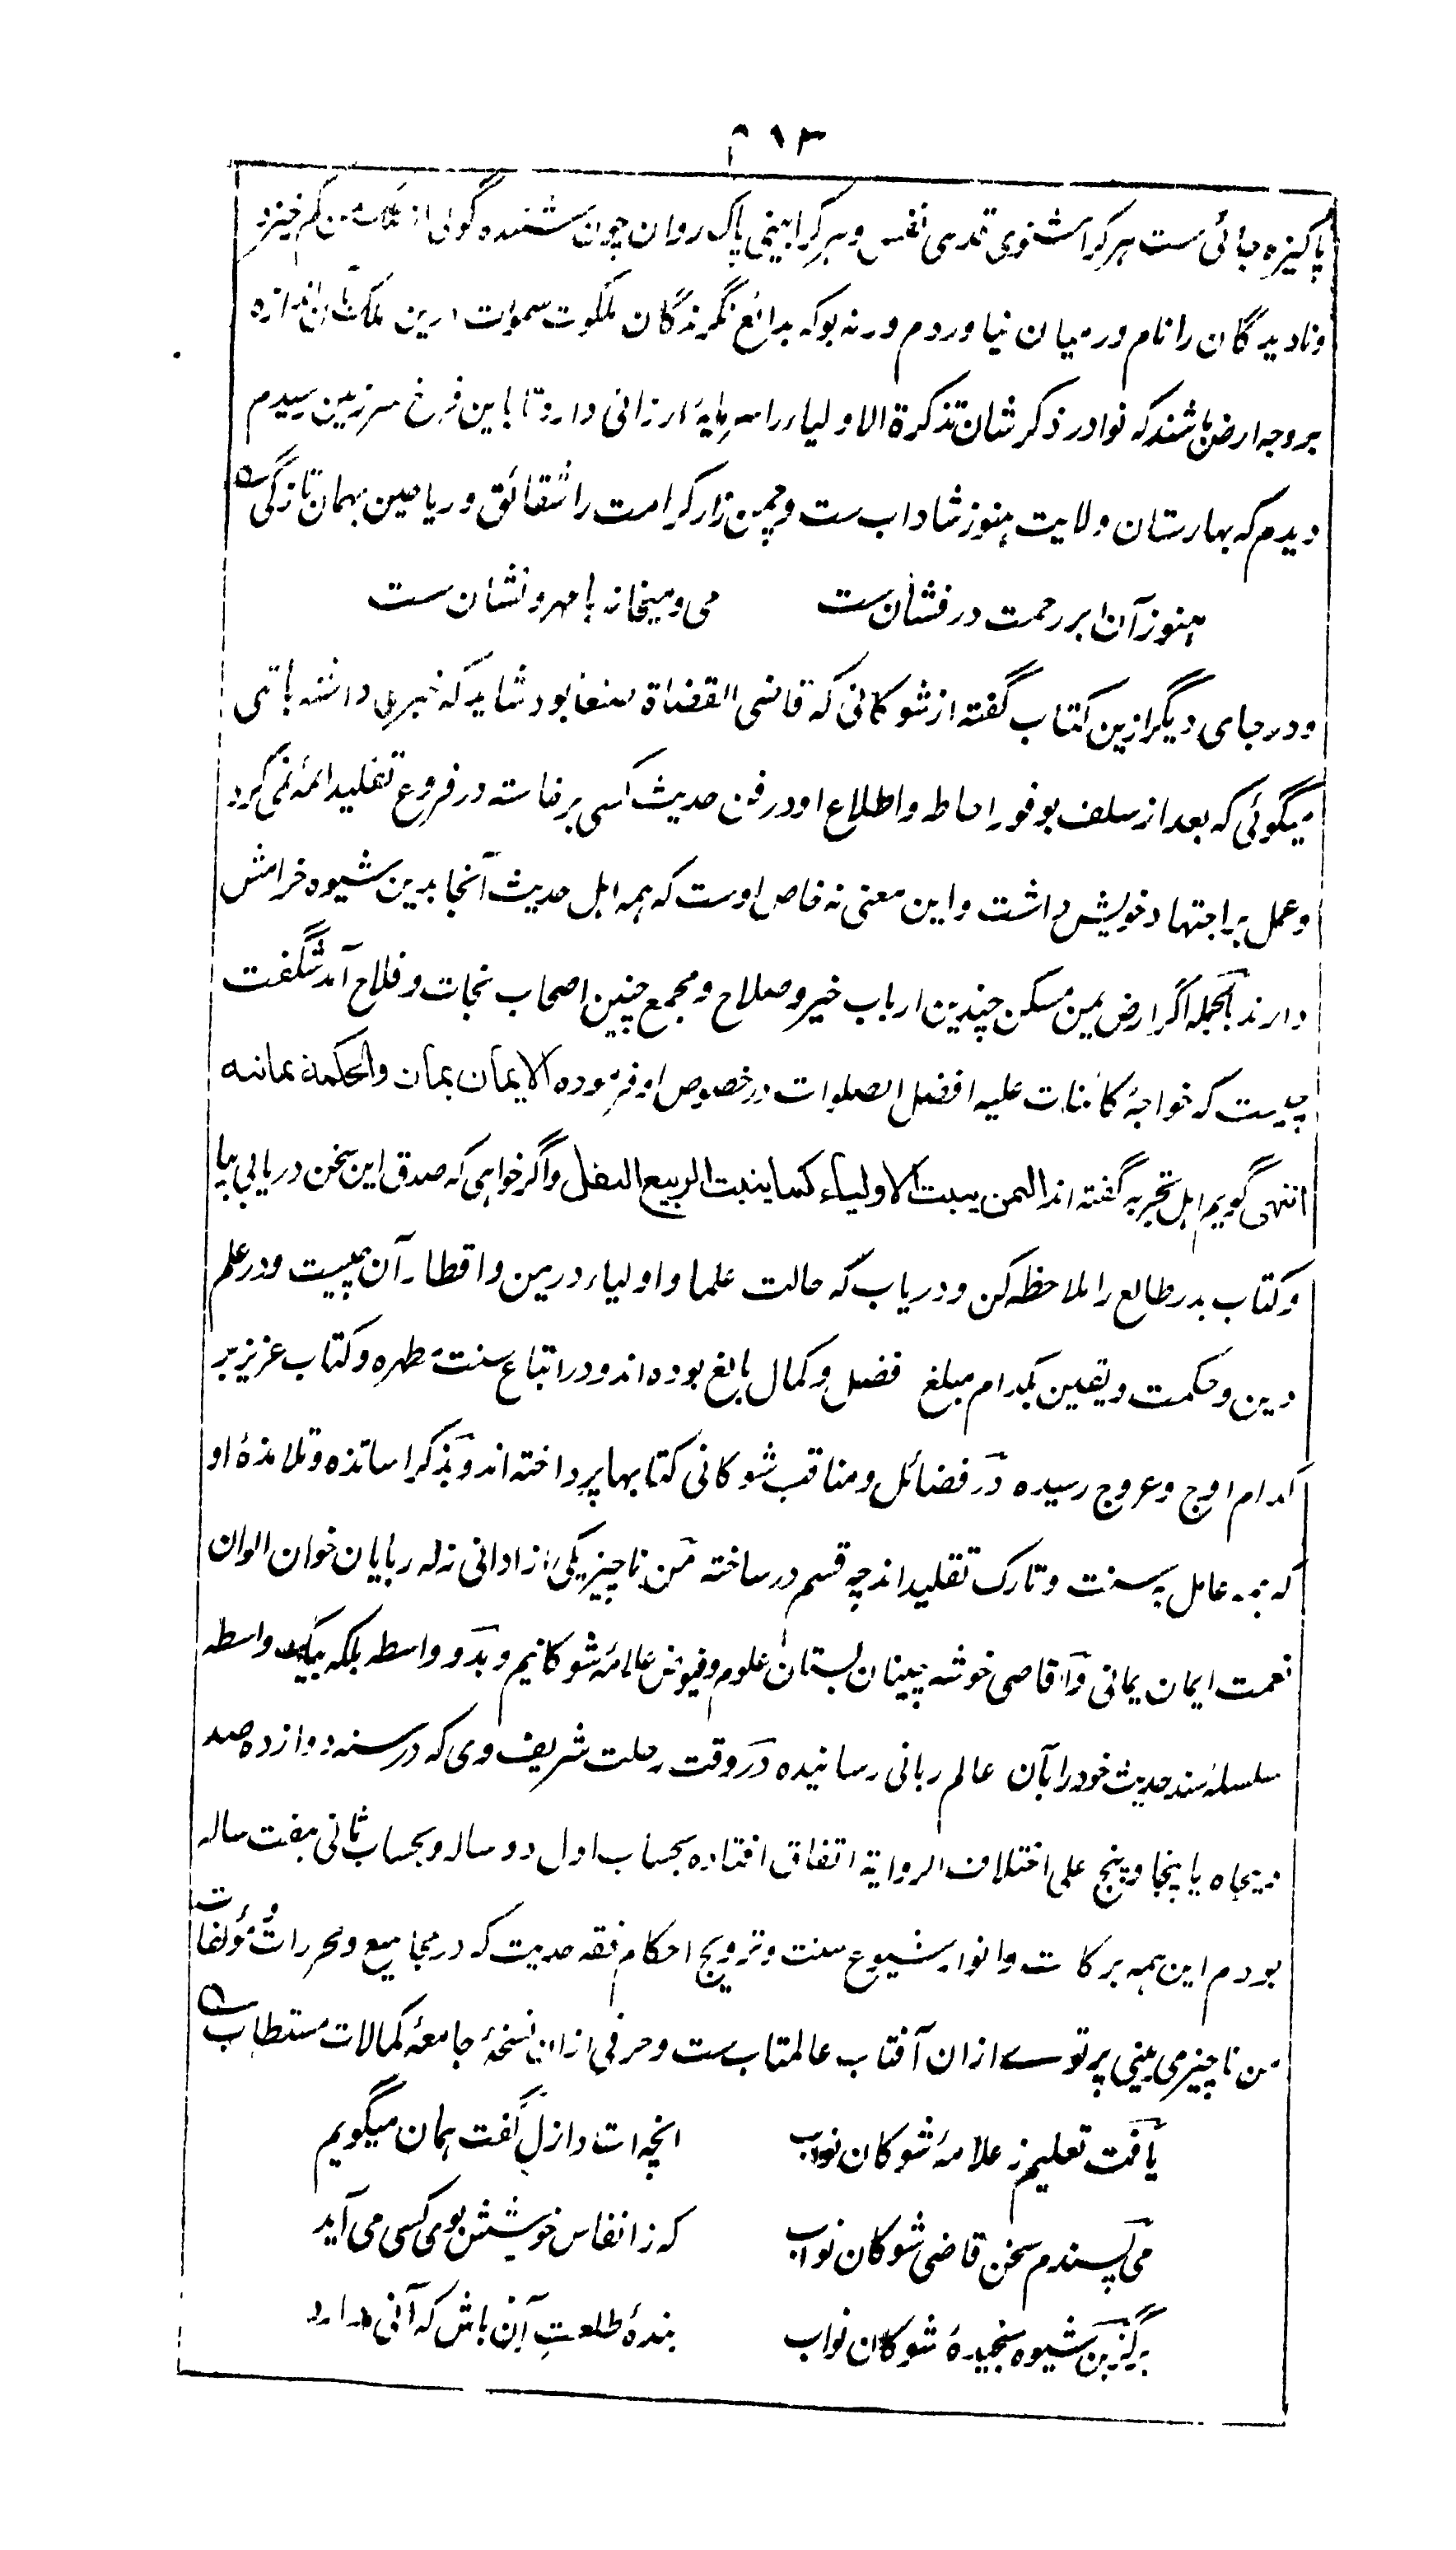 ۴۱۳
پاکیزه جائی ست هر کرا شنوی قدسی نفس و هر کرا بینی پاک روان چون شنیده گوئی از من کم خیزد
و نادیدگان را نام در میان نیاوردم ورنه بوکه بدائع نگرندگان ملکوت سموات درین ملکستان اندازه
بر وجه ارض باشند که نوادر ذکرشان تذکرة الاولیاء را سرمایهٔ ارزانی دارد تا باین فرخ سرزمین رسیدم
دیدم که بهارستان ولایت هنوز شاداب ست و چمن زار کرامت را شقائق و ریاحین بهمان تازگی ه
هنوز آن ابر رحمت درفشان ست می و میخانه با مهر و نشان ست
و در جای دیگر ازین کتاب گفته از شوکانی که قاضی القضاة صنعا بود شاید که خبری داشته باشی
میگوئی که بعد از سلف بوفور احاطه و اطلاع او در فن حدیث کسی برخاسته در فروع تقلید ائمه نمی کرد
و عمل بر اجتهاد خویش داشت و این معنی نه خاص اوست که همه اهل حدیث آنجا بدین شیوه خرامش
دارند بالجمله اگر ارض یمن مسکن چندین ارباب خیر و صلاح و مجمع چنین اصحاب نجات و فلاح آمد شگفت
چیست که خواجهٔ کائنات علیه افضل الصلوات در خصوص او فرموده الایمان یمان والحکمة یمانیه
انتهی گویم اهل تجربه گفته اند الیمن ینبت الاولیاء کما ینبت الربیع البقل و اگر خواهی که صدق این سخن دریابی بیا
و کتاب بدر طالع را ملاحظه کن و دریاب که حالت علما و اولیاء در یمن و اقطار آن چیست و در علم
دین و حکمت و یقین بکدام مبلغ فضل و کمال بالغ بوده اند و در اتباع سنت مطهره و کتاب عزیز بر
کدام اوج و عروج رسیده در فضائل و مناقب شوکانی کتابها پرداخته اند و بذکر اساتذه و تلامذهٔ او
که همه عامل به سنت و تارک تقلید اند چه قسم در ساخته من ناچیز یکی از ادانی زله ربایان خوان الوان
نعمت ایمان یمانی و اقاصی خوشه چینان بستان علوم و فیوض علامه شوکانیم و بدو واسطه بلکه بیک واسطه
سلسله سند حدیث خود را بآن عالم ربانی رسانیده در وقت رحلت شریف وی که در سنه دوازده صد
و پنجاه یا پنجاه و پنج علی اختلاف الروایة اتفاق افتاده بحساب اول دو ساله و بحساب ثانی هفت ساله
بودم این همه برکات و انوار شیوع سنت و ترویج احکام فقه حدیت که در مجامیع و محررات و مؤلفات
من ناچیز می بینی پرتوے ازان آفتاب عالمتاب ست و حرفی ازان نسخهٔ جامعهٔ کمالات مستطاب ه
یافت تعلیم ز علامهٔ شوکان نواب انچه استاد ازل گفت همان میگویم
می پسندم سخن قاضی شوکان نواب که ز انفاس خوشش بوی کسی می آید
برگزین شیوه سنجیدهٔ شوکان نواب بندهٔ طلعت آن باش که آنی دارد